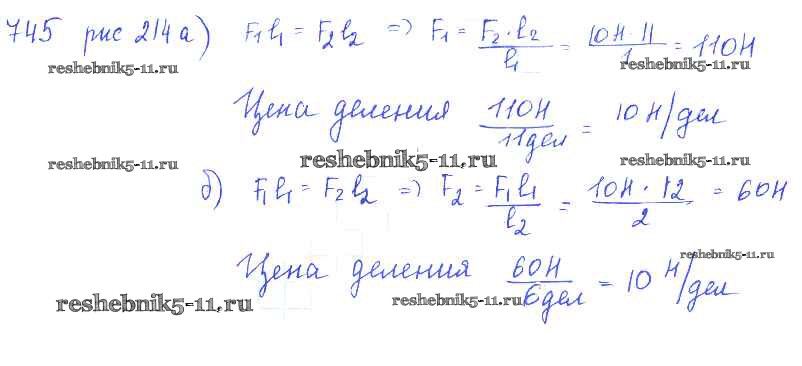 745 рис 214 а) F₁l₁ = F₂l₂ => F₁ = F₂·l₂/l₁ = 10Н·11/1 = 110Н
reshebnik5-11.ru reshebnik5-11.ru
Цена деления 110Н/11дел = 10 Н/дел
reshebnik5-11.ru reshebnik5-11.ru reshebnik5-11.ru
б) F₁l₁ = F₂l₂ => F₂ = F₁l₁/l₂ = 10Н·12/2 = 60Н
reshebnik5-11.ru
Цена деления 60Н/6дел = 10 Н/дел
reshebnik5-11.ru reshebnik5-11.ru